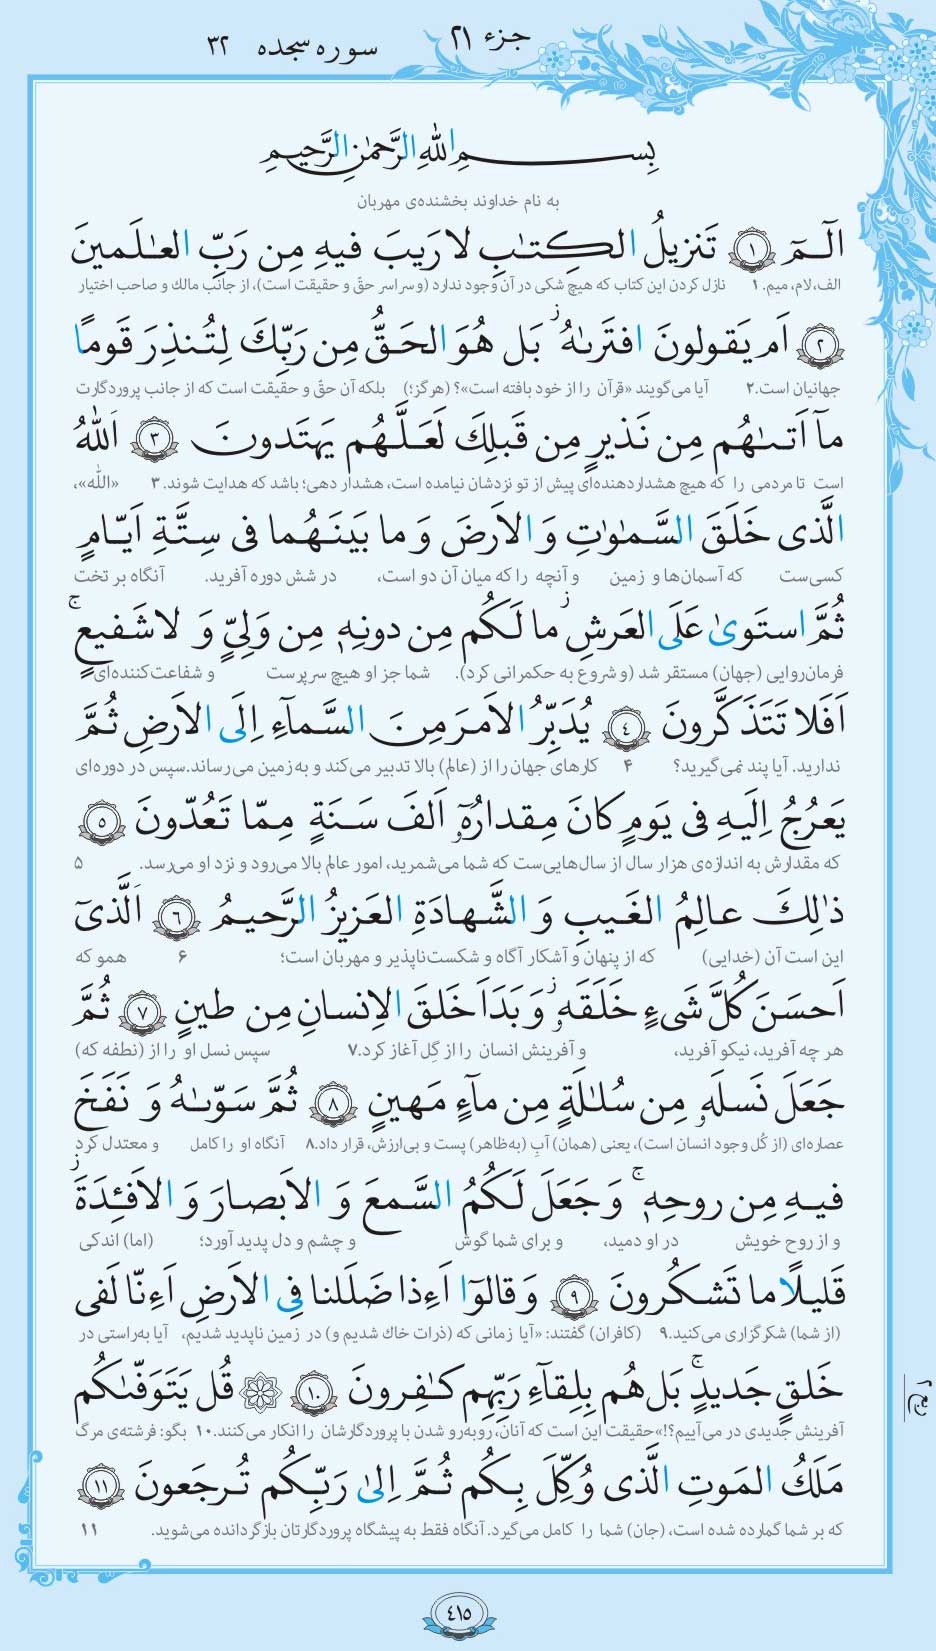 جزء ۲۱
سوره سجده ۳۲
بِسمِ اللّٰهِ الرَّحمٰنِ الرَّحيمِ
به نام خداوند بخشنده‌ی مهربان
الٓمٓ ﴿۱﴾ تَنزيلُ الكِتٰبِ لا رَيبَ فيهِ مِن رَبِّ العٰلَمينَ
الف، لام، میم. ۱ نازل کردن این کتاب که هیچ شکی در آن وجود ندارد (و سراسر حقّ و حقیقت است)، از جانب مالک و صاحب اختیار
﴿۲﴾ اَم يَقولونَ افتَرىٰهُ ۚ بَل هُوَ الحَقُّ مِن رَبِّكَ لِتُنذِرَ قَومًا
جهانیان است.۲ آیا می‌گویند «قرآن را از خود بافته است»؟ (هرگز؛) بلکه آن حقّ و حقیقت است که از جانب پروردگارت
مآ اَتىٰهُم مِن نَذيرٍ مِن قَبلِكَ لَعَلَّهُم يَهتَدونَ ﴿۳﴾ اَللّٰهُ
است تا مردمی را که هیچ هشداردهنده‌ای پیش از تو نزدشان نیامده است، هشدار دهی؛ باشد که هدایت شوند. ۳ «اللّٰه»،
الَّذى خَلَقَ السَّمٰوٰتِ وَ الاَرضَ وَ ما بَينَهُما فى سِتَّةِ اَيّامٍ
کسی‌ست که آسمان‌ها و زمین و آنچه را که میان آن دو است، در شش دوره آفرید. آنگاه بر تخت
ثُمَّ استَوىٰ عَلَى العَرشِ ۖ ما لَكُم مِن دونِه۪ مِن وَلِىٍّ وَ لا شَفيعٍ ۚ
فرمان‌روایی (جهان) مستقر شد (و شروع به حکمرانی کرد). شما جز او هیچ سرپرست و شفاعت‌کننده‌ای
اَفَلا تَتَذَكَّرونَ ﴿۴﴾ يُدَبِّرُ الاَمرَ مِنَ السَّمآءِ اِلَى الاَرضِ ثُمَّ
ندارید. آیا پند نمی‌گیرید؟ ۴ کارهای جهان را از (عالم) بالا تدبیر می‌کند و به زمین می‌رساند. سپس در دوره‌ای
يَعرُجُ اِلَيهِ فى يَومٍ كانَ مِقدارُهٗٓ اَلفَ سَنَةٍ مِمّا تَعُدّونَ ﴿۵﴾
که مقدارش به اندازه‌ی هزار سال از سال‌هایی‌ست که شما می‌شمرید، امور عالم بالا می‌رود و نزد او می‌رسد. ۵
ذٰلِكَ عالِمُ الغَيبِ وَ الشَّهادَةِ العَزيزُ الرَّحيمُ ﴿۶﴾ اَلَّذىٓ
این است آن (خدایی) که از پنهان و آشکار آگاه و شکست‌ناپذیر و مهربان است؛ ۶ همو که
اَحسَنَ كُلَّ شَىءٍ خَلَقَهٗ ۖ وَ بَدَاَ خَلقَ الاِنسانِ مِن طينٍ ﴿۷﴾ ثُمَّ
هر چه آفرید، نیکو آفرید، و آفرینش انسان را از گِل آغاز کرد.۷ سپس نسل او را از (نطفه که)
جَعَلَ نَسلَهٗ مِن سُلٰلَةٍ مِن مآءٍ مَهينٍ ﴿۸﴾ ثُمَّ سَوّىٰهُ وَ نَفَخَ
عصاره‌ای (از کُل وجود انسان است)، یعنی (همان) آبِ (به‌ظاهر) پست و بی‌ارزش، قرار داد.۸ آنگاه او را کامل و معتدل کرد
فيهِ مِن روحِه۪ ۚ وَ جَعَلَ لَكُمُ السَّمعَ وَ الاَبصارَ وَ الاَفـِٔدَةَ ۚ
و از روح خویش در او دمید، و برای شما گوش و چشم و دل پدید آورد؛ (اما) اندکی
قَليلًا ما تَشكُرونَ ﴿۹﴾ وَ قالوٓا اَءِذا ضَلَلنا فِى الاَرضِ اَءِنّا لَفى
(از شما) شکرگزاری می‌کنید.۹ (کافران) گفتند: «آیا زمانی که (ذرات خاک شدیم و) در زمین ناپدید شدیم، آیا به‌راستی در
خَلقٍ جَديدٍ ۚ بَل هُم بِلِقآءِ رَبِّهِم كٰفِرونَ ﴿۱۰﴾ ۞ قُل يَتَوَفّىٰكُم
آفرینش جدیدی در می‌آییم؟!» حقیقت این است که آنان، روبه‌رو شدن با پروردگارشان را انکار می‌کنند.۱۰ بگو: فرشته‌ی مرگ
مَلَكُ المَوتِ الَّذى وُكِّلَ بِكُم ثُمَّ اِلىٰ رَبِّكُم تُرجَعونَ ﴿۱۱﴾
که بر شما گمارده شده است، (جان) شما را کامل می‌گیرد. آنگاه فقط به پیشگاه پروردگارتان بازگردانده می‌شوید. ۱۱
۴۱۵